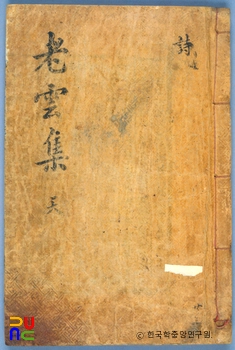 老雲集
詩
ⓒ 한국학중앙연구원